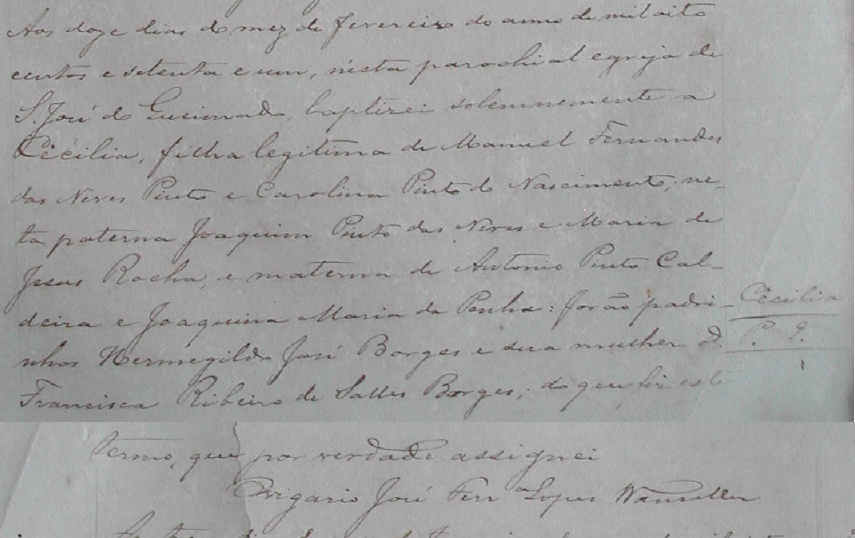 Aos doze dias do mez de fevereiro do anno de mil oito
centos e setenta e um, nesta parochial egreja de
S. José do Queimado, baptizei solemnemente a
Cecilia, filha legitima de Manuel Fernandes
das Neves Pinto e Carolina Pinto do Nascimento; ne-
ta paterna Joaquim Pinto das Neves e Maria de
Jesus Rocha, e materna de Antonio Pinto Cal-
deira e Joaquina Maria da Penha: forão padri-
nhos Hermegildo José Borges e sua mulher D.
Francisca Ribeiro de Salles Borges; do que fiz este
Cecilia
P. 
termo, que por verdade assignei
O vigario José Ferr Lopes